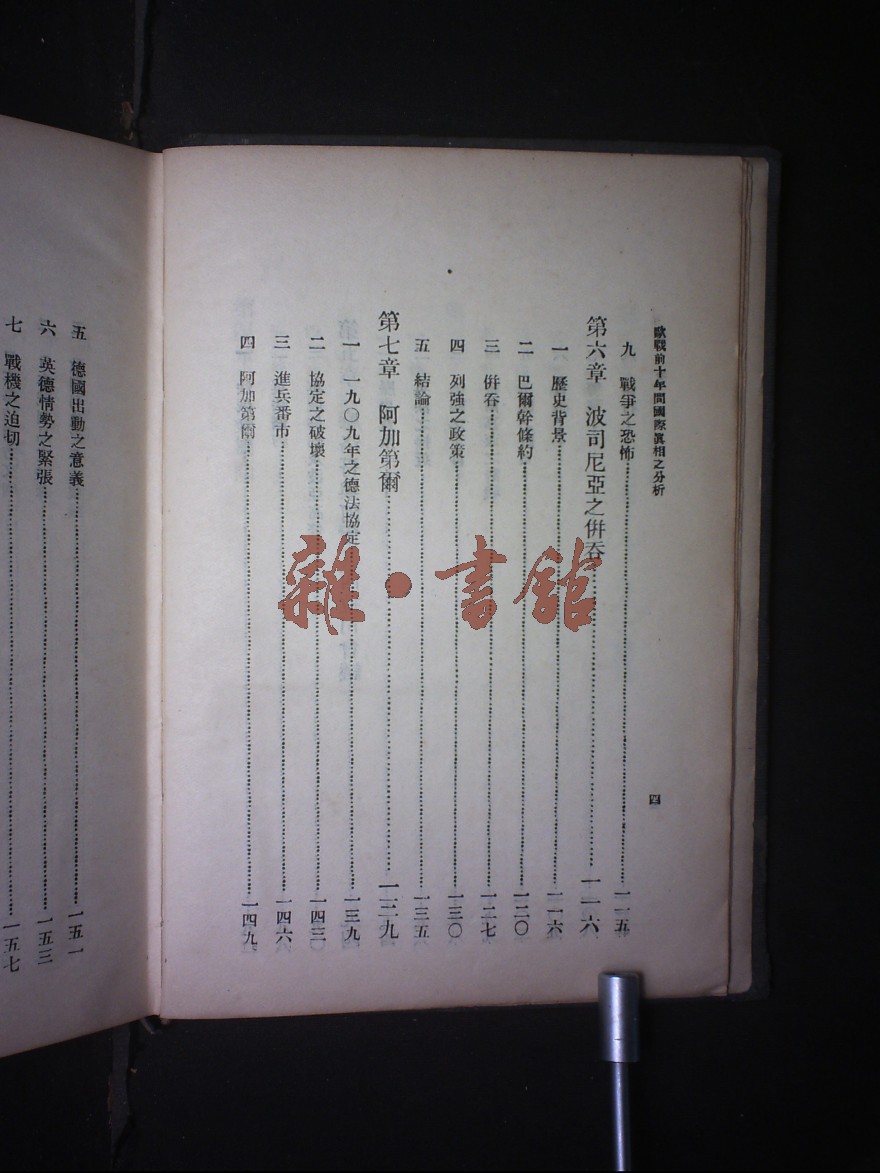 歐戰前十年間國際眞相之分析
四
九　戰爭之恐怖…一一五
第六章　波司尼亞之併吞…一一六
一　歷史背景…一一六
二　巴爾幹條約…一二〇
三　併吞…一二七
四　列強之政策…一三〇
五　結論…一三五
第七章　阿加第爾…一三九
一　一九〇九年之德法協定…一三九
二　協定之破壞…一四三
三　進兵番市…一四六
四　阿加第爾…一四九
五　德國出動之意義…一五一
六　英德情勢之緊張…一五三
七　戰機之迫切…一五七
雜·書館